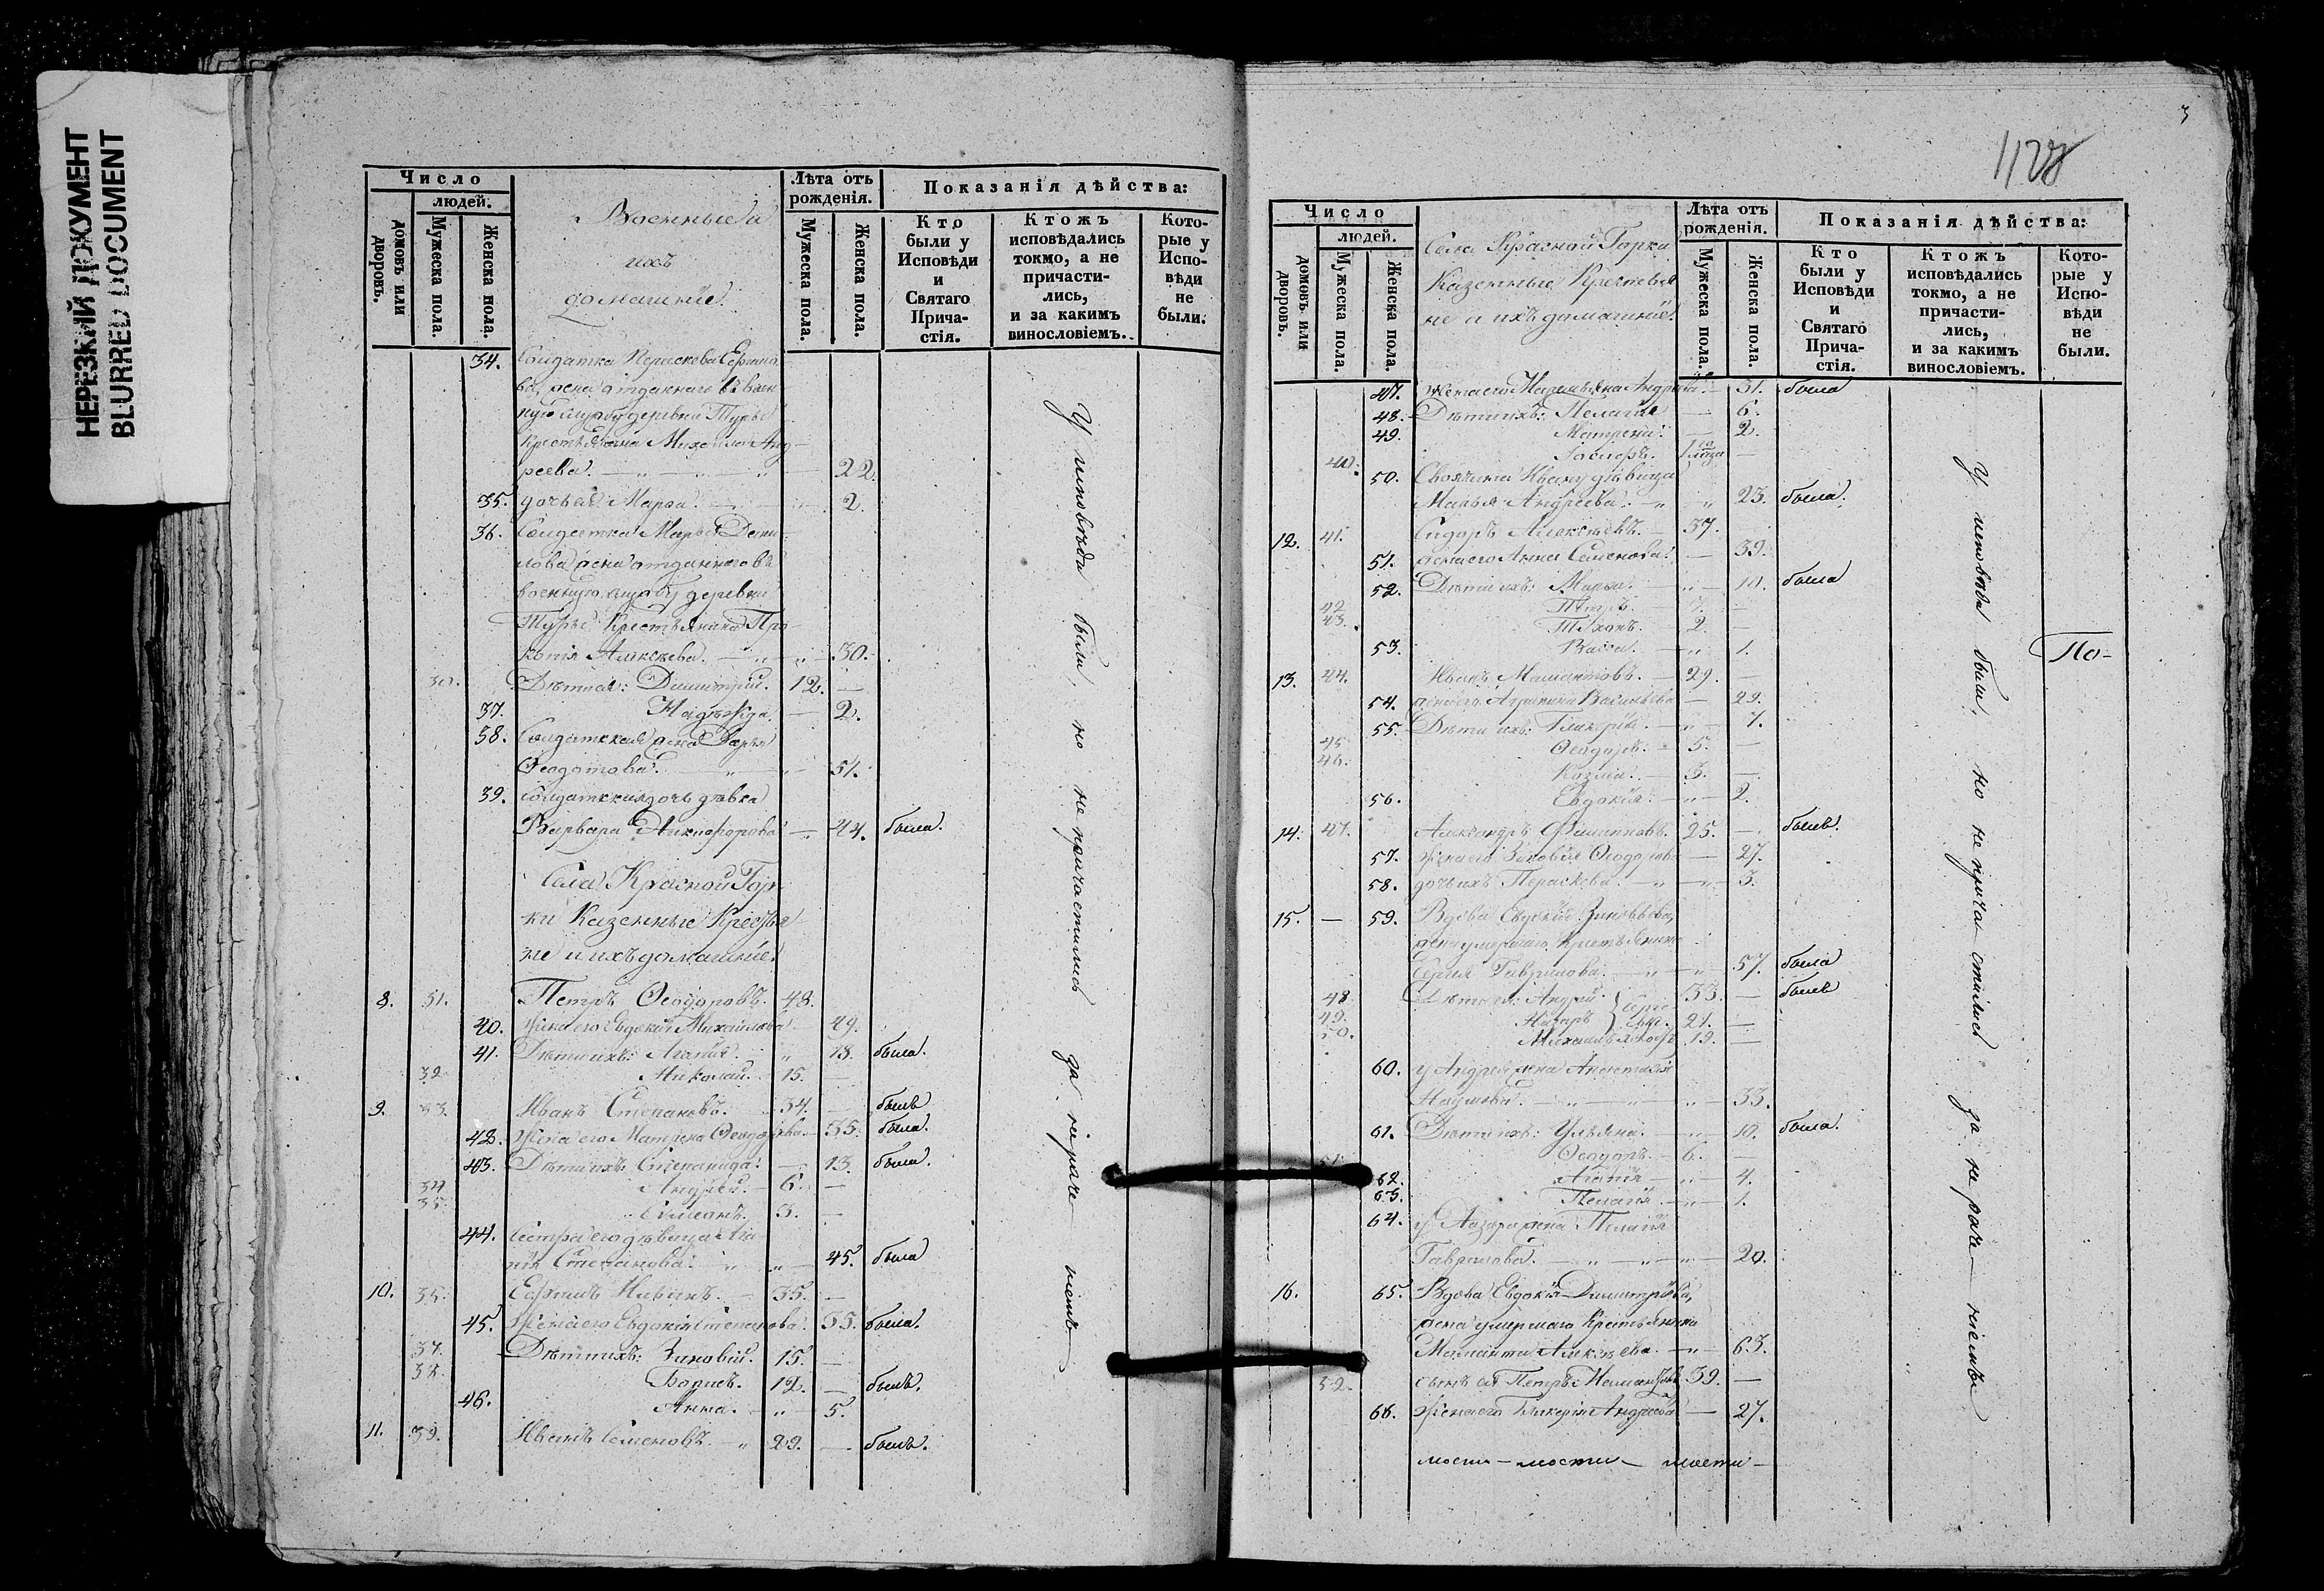 НЕРЕЗКИЙ ДОКУМЕНТ
BLURRED DOCUMENT
Число
людей.
домовъ или дворовъ.
Мужеска пола.
Женска пола.
Военные и
ихъ
домашніе.
Лѣта отъ рожденія.
Мужеска пола.
Женска пола.
Показанія дѣйства:
Кто были у Исповѣди и Святаго Прича-стія.
Ктожъ исповѣдались токмо, а не причасти-лись, и за какимъ винословіемъ.
Кото-рые у Испо-вѣди не были.
34. Солдатка Параскева Ефимо
ва, жена отданнаго въ воен
ную службу деревни Туры
Крестьянина Михаила Анд-
реева. 22.
35. дочь ея Марѳа. 2.
36. Солдатка Марья Дани
лова жена отданнаго въ
военную службу деревни
Туры Крестьянина Про-
копія Алексѣева. 30.
30. Дѣти ея: Димитрій. 12. —
37. Надежда. — 2.
38. Солдатская жена Дарья
Ѳеодотова. 51.
39. Солдатская дочь дѣвка
Варвара Никифорова — 44. была.
Села Красной Гор-
ки Казенные Крестья
не и ихъ домашніе.
8. 31. Петръ Ѳеодоровъ. 48.
40. Жена его Евдокія Михайлова 49.
41. Дѣти ихъ: Агафія. 18. была.
32. Николай. 15. —
9. 33. Иванъ Степановъ. 34. — былъ
42. Жена его Матрена Ѳеодорова. 35. была.
43. Дѣти ихъ: Степанида. — 13. была.
34. Андрей. 6. —
35. Симеонъ. 3. —
44. Сестра его дѣвица Ага
фія Степанова. 45. была
10. 36. Ефимъ 35. —
45. Жена его Евдокія Степанова. 35. была.
37. Дѣти ихъ: Зиновій. 15. —
38. Борисъ. 12. — былъ.
46. Анна. 5.
11. 39. Иванъ Семеновъ. 29. — былъ.
У исповѣди были, но не причастились за нераче-ніемъ
3
1128
Число
людей.
домовъ или дворовъ.
Мужеска пола.
Женска пола.
Села Красной Горки
Казенные Крестья
не и ихъ домашніе.
Лѣта отъ рожденія.
Мужеска пола.
Женска пола.
Показанія дѣйства:
Кто были у Исповѣди и Святаго Прича-стія.
Ктожъ исповѣдались токмо, а не причасти-лись, и за какимъ винословіемъ.
Кото-рые у Испо-вѣди не были.
47. жена его Маремьяна Андреева. — 31. была
48. Дѣти ихъ: Пелагія — 6.
49. Матрена. — 2.
40.
50. Своячина Ивану дѣвица
Марья Андреева. 23. была.
12. 41. Сидоръ Алексѣевъ. 37. —
51. жена его Анна Семенова. — 39.
52. Дѣти ихъ: Марѳа. 10. была
42. Петръ. 7. —
43. Тихонъ. 2. —
53. Васса. 1.
По-
13. 44. Иванъ Мамантовъ. 29. —
54. жена его Агрипина Васильева — 29.
55. Дѣти ихъ: Гликерія. 7.
45. Ѳеодоръ. 5. —
46. Козма. 3. —
56. Евдокія. 2.
14. 47. Александръ Филиповъ. 25. — былъ.
57. Жена его Зиновія Ѳеодорова — 27.
58. дочь ихъ Параскева. 3.
15. — 59. Вдова Евдокія Зиновьева,
жена умершаго Крестьянина
Сергія Гаврилова. 57. была
48. Дѣти ея: Андрей 33. — былъ
49. Назаръ 21. —
50. Михаилъ 19. —
60. у Андрея жена Анастасія
Наумова. 33.
61. Дѣти ихъ: Ульяна. 10. была.
51. Ѳеодоръ. 6. —
62. Агафія. 4.
63. Пелагія. 1.
64. у Назара жена Пелагія
Гаврилова. 20.
16. 65. Вдова Евдокія Димитріева,
жена умершаго Крестьянина
Маманта Алексѣева. 63.
52. сынъ ея Петръ Мамантовъ 39. —
66. Жена его Гликерія Андреева — 27.
У исповѣди были, но не прича-стились за нераче-ніемъ